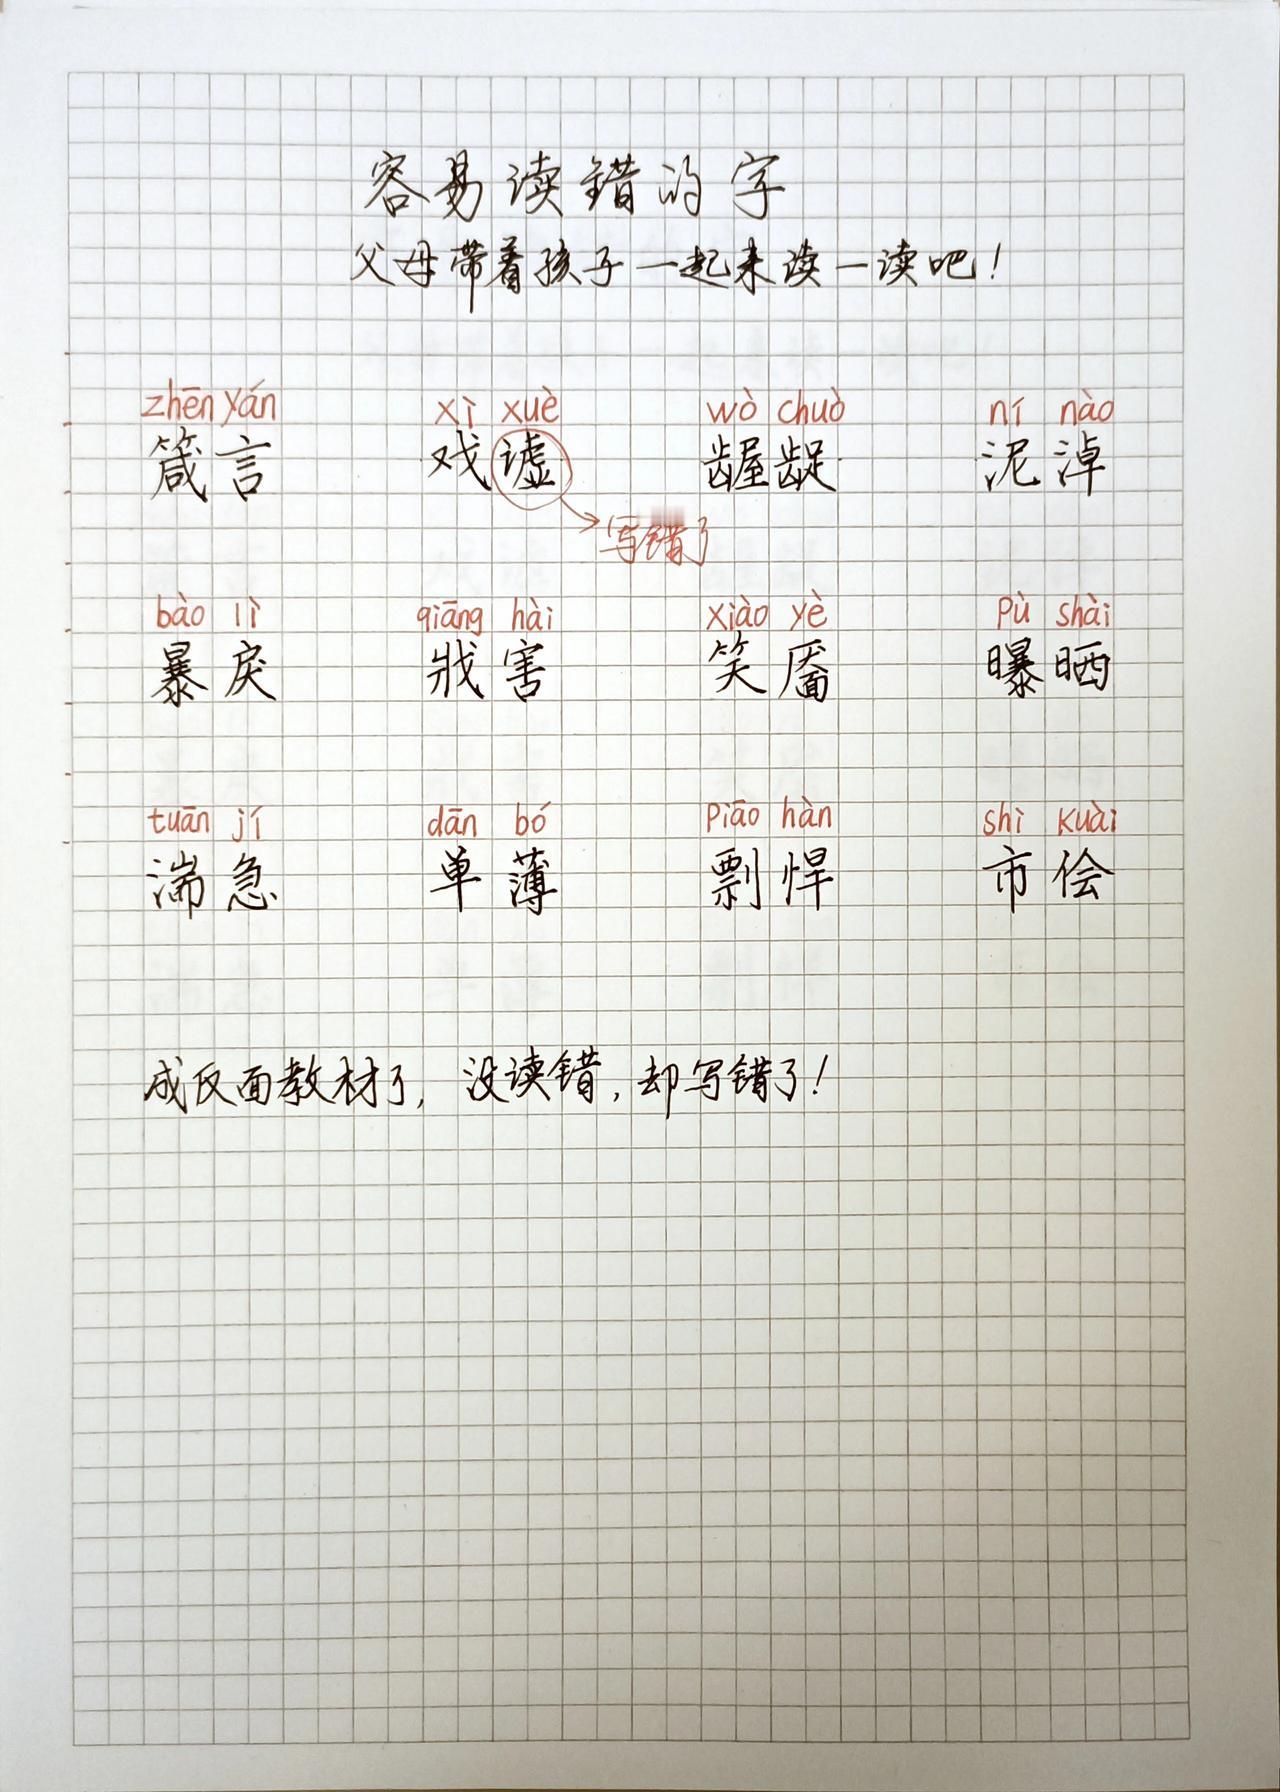 容易读错的字
父母带着孩子一起来读一读吧！
zhēn yán xì xuè wò chuò ní nào
箴言 戏谑 龌龊 泥淖
写错了
bào lì qiāng hài xiào yè pù shài
暴戾 戕害 笑靥 曝晒
tuān jí dān bó piāo hàn shì kuài
湍急 单薄 剽悍 市侩
成反面教材了，没读错，却写错了！